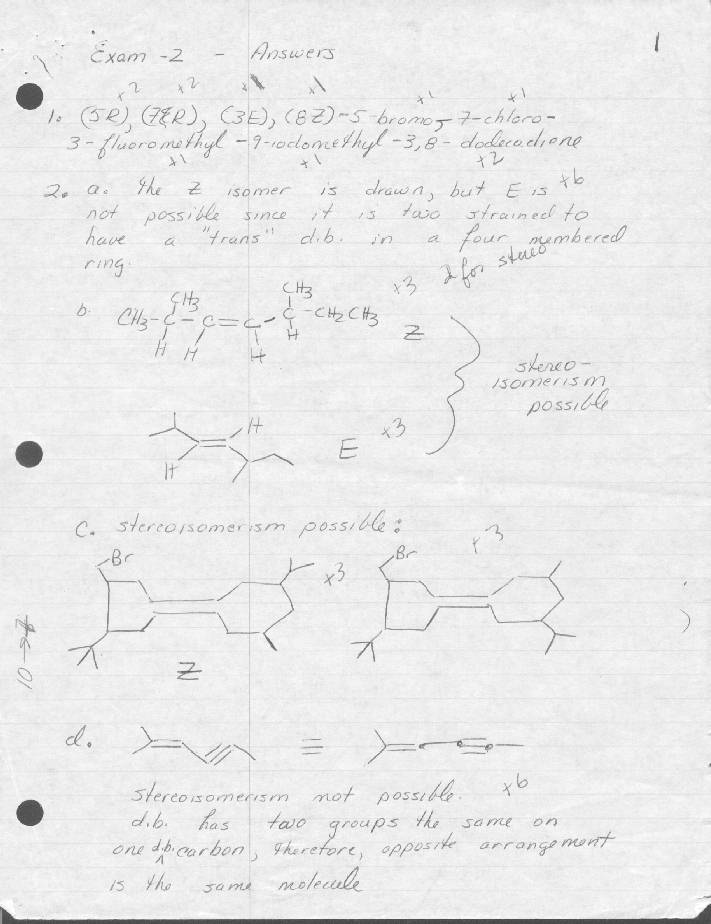 1
Exam-2 - Answers
x2 x2 x1 x1 x1 x1
1. (5R), (7R), (3E), (8Z)-5-bromo-7-chloro-
3-fluoromethyl-9-iodomethyl-3,8-dodecadiene
x1 x1 x2
2. a. The Z isomer is drawn, but E is x6
not possible since it is two strained to
have a "trans" d.b. in a four membered
ring.
x3 2 for stereo
b. CH3-C-C=C-C-CH2CH3 Z
CH3 CH3
H H H H
stereo-
isomerism
possible
H H E x3
c. stereoisomerism possible:
Br x3 Br x3
Z
10→7
d. ≡
stereoisomerism not possible. x6
d.b. has two groups the same on
one d.b. carbon, therefore, opposite arrangement
is the same molecule